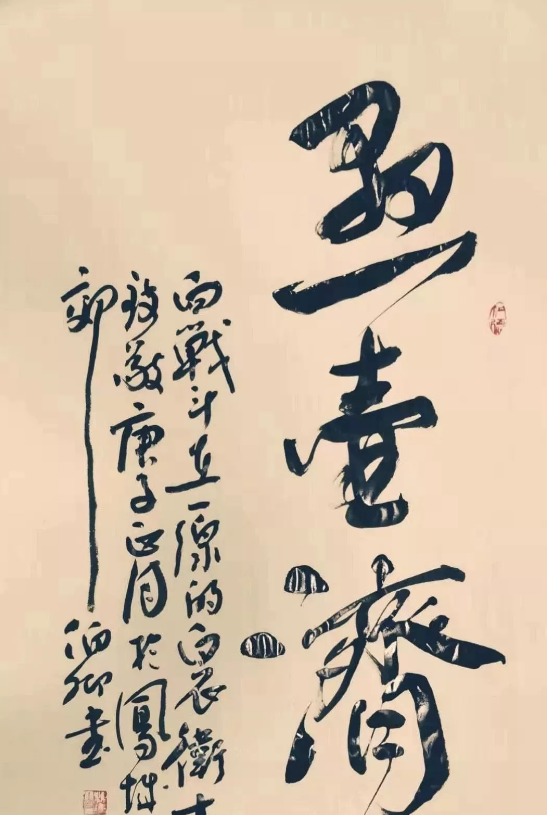 悬壺濟
向戰斗在一線的白衣衛士
致敬庚子正月於鳳城
郊伯卿書